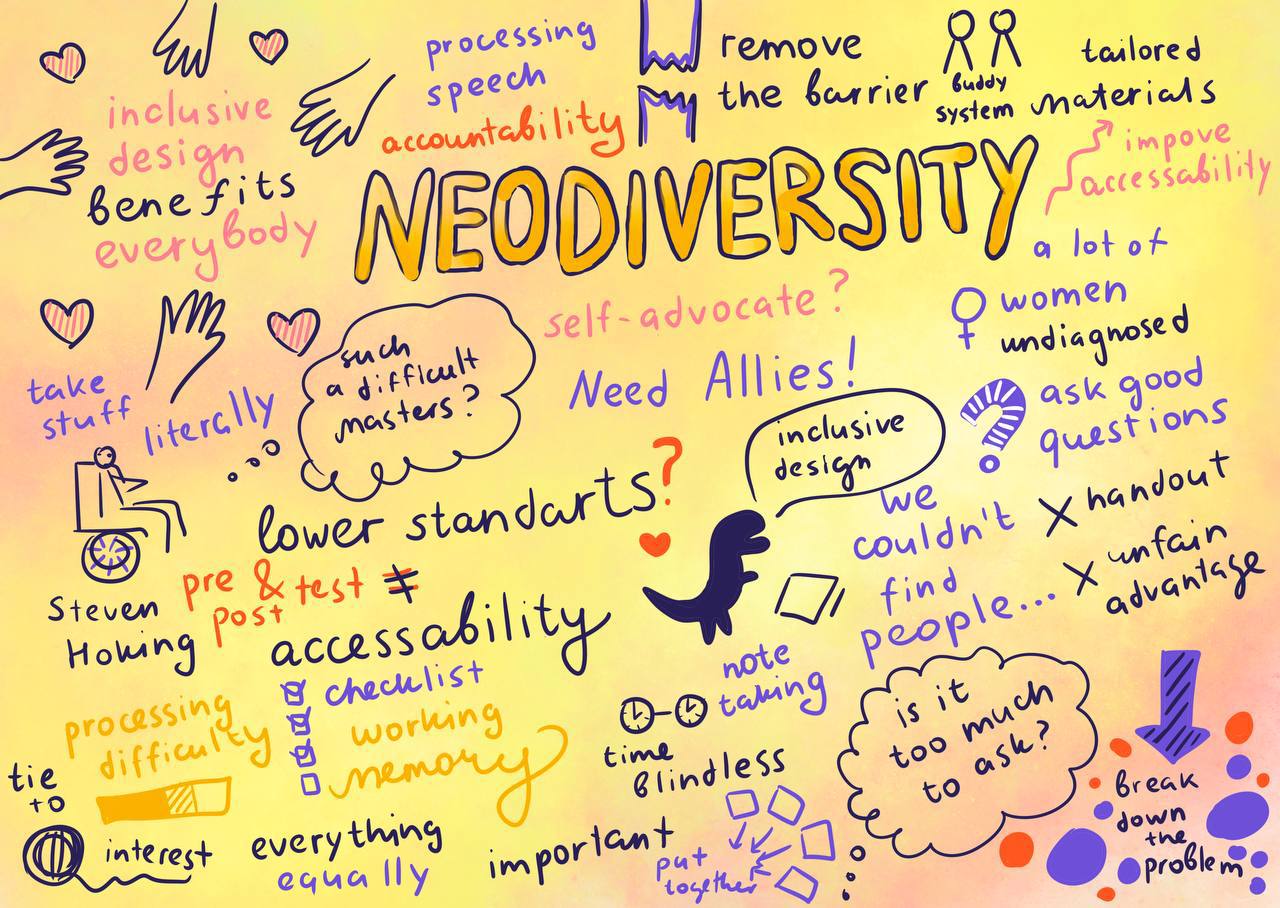 inclusive
design
benefits
everybody
processing
speech
accountability
remove
the barrier
buddy
system
tailored
materials
impove
accessability
NEODIVERSITY
a lot of
women
undiagnosed
self-advocate?
Need Allies!
such
a difficult
masters?
take
stuff
literally
inclusive
design
ask good
questions
lower standarts?
we
couldn't
find
people...
x handout
x unfain
advantage
Steven
Hoking
pre &
post test ≠
accessability
checklist
working
memory
processing
difficulty
note
taking
time
blindless
is it
too much
to ask?
tie
to
interest
everything
equally
important
put
together
break
down
the
problem